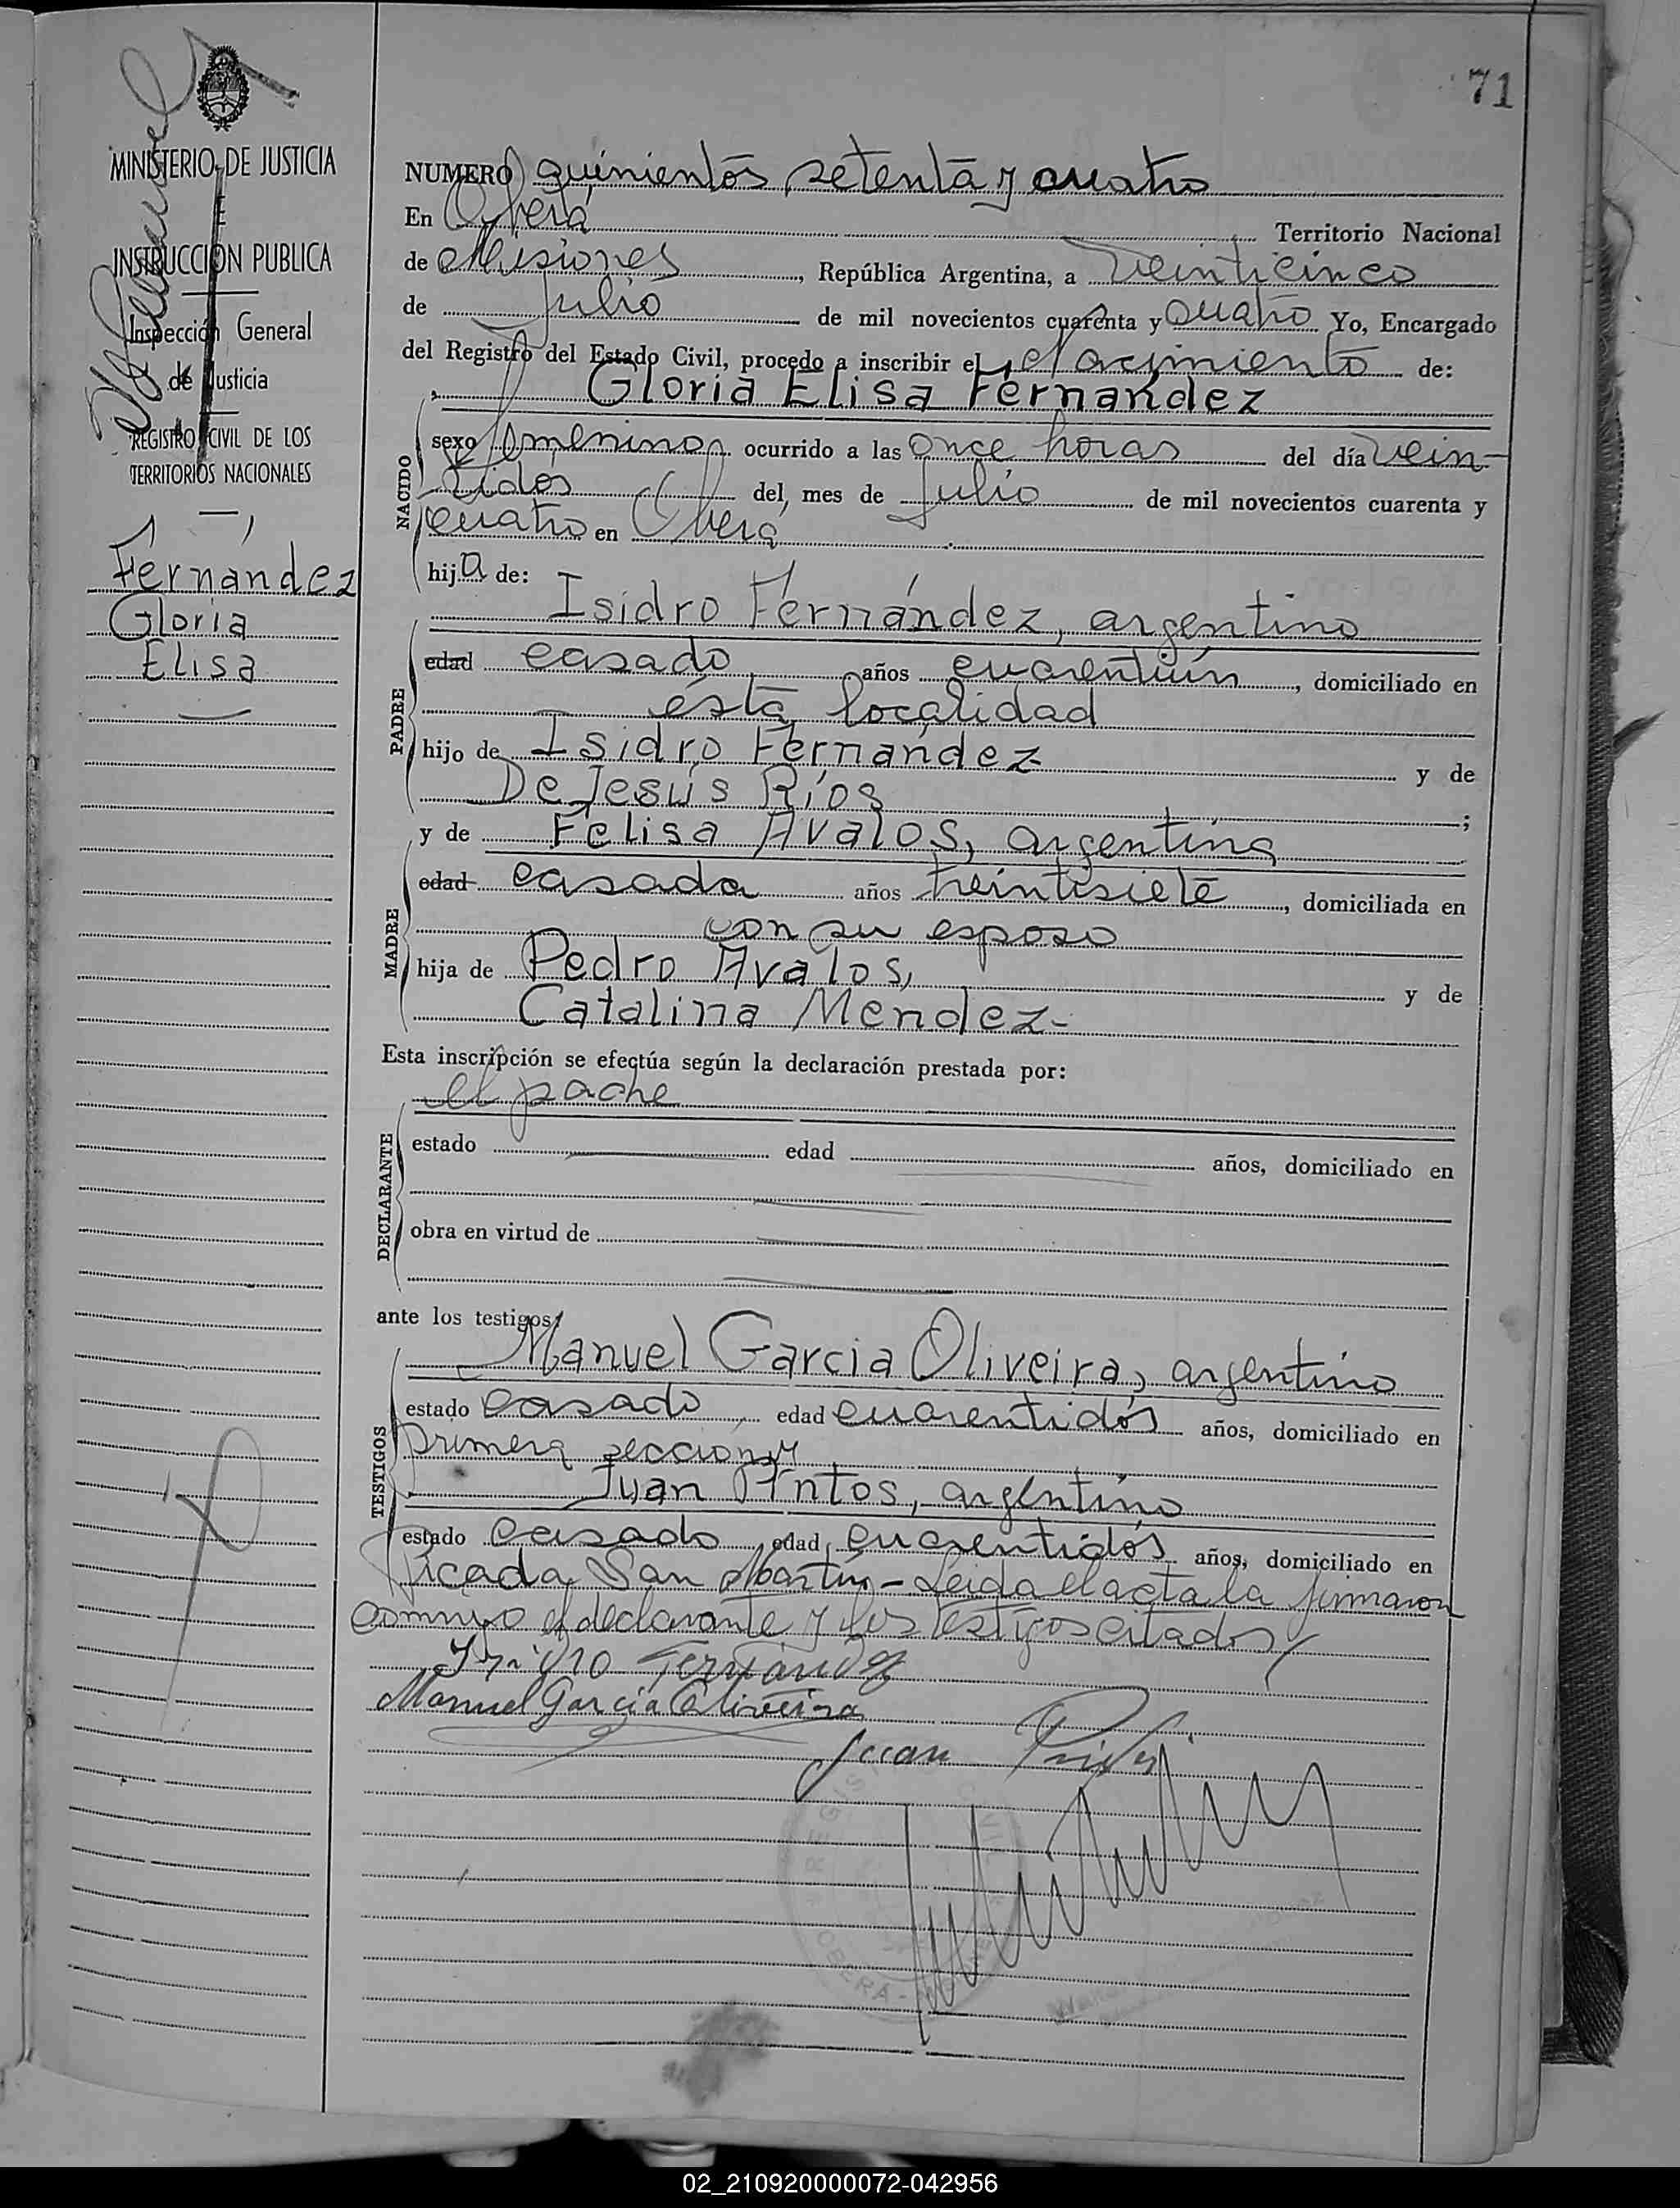 71
MINISTERIO DE JUSTICIA
E
INSTRUCCIÓN PUBLICA
Inspección General
de Justicia
REGISTRO CIVIL DE LOS
TERRITORIOS NACIONALES
Fernández
Gloria
Elisa
NUMERO quinientos setenta y cuatro
En Oberá Territorio Nacional
de Misiones, República Argentina, a veinticinco
de Julio de mil novecientos cuarenta y cuatro Yo, Encargado
del Registro del Estado Civil, procedo a inscribir el nacimiento de:
Gloria Elisa Fernández
NACIDO
sexo femenino ocurrido a las once horas del día vein-
tidós del mes de Julio de mil novecientos cuarenta y
cuatro en Oberá
hija de:
Isidro Fernández, argentino
PADRE
edad casado años cuarentiún, domiciliado en
ésta localidad
hijo de Isidro Fernández y de
De Jesús Ríos ;
y de Felisa Avalos, argentina
MADRE
edad casada años treintisiete, domiciliada en
con su esposo
hija de Pedro Avalos, y de
Catalina Mendez-
Esta inscripción se efectúa según la declaración prestada por:
el padre
DECLARANTE
estado edad años, domiciliado en
obra en virtud de
ante los testigos:
Manuel Garcia Oliveira, argentino
TESTIGOS
estado casado, edad cuarentidós años, domiciliado en
primera sección y
Juan, argentino
estado casado edad cuarentidós años, domiciliado en
Picada San Martín - Leida el acta la firmaron
conmigo el declarante y los testigos citados
Fernández
Manuel Garcia Oliveira
Juan
REGISTRO CIVIL
OBERÁ -
02_210920000072-042956